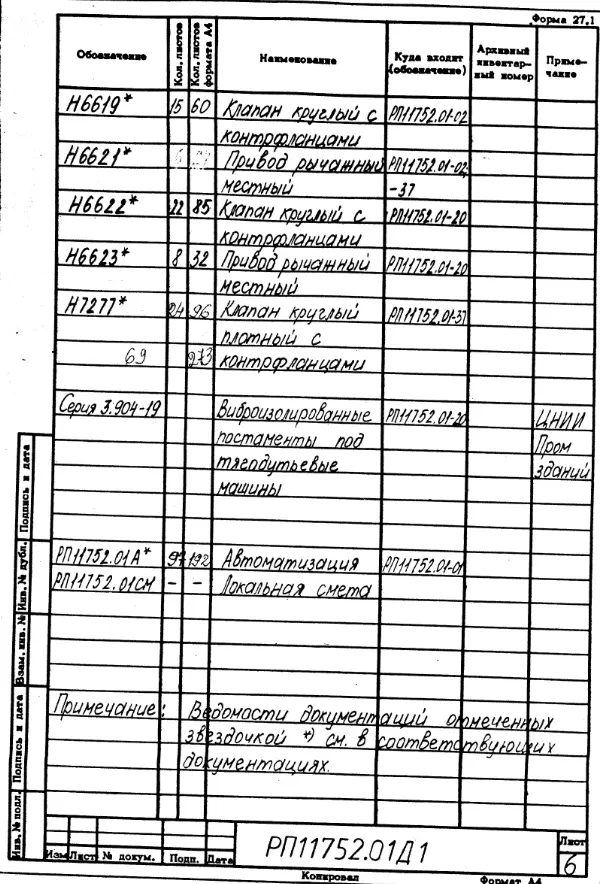 Форма 27.1
Обозначение Кол. листов Кол. листов формата А4 Наименование Куда входит (обозначение) Архивный инвентарный номер Примечание
Н6619* 15 60 Клапан круглый с РП11752.01-02
контрфланцами
Н6621* Привод рычажный РП11752.01-02,
местный -37
Н6622* 22 85 Клапан круглый с РП11752.01-20
контрфланцами
Н6623* 8 32 Привод рычажный РП11752.01-20
местный
Н7277* 24 96 Клапан круглый РП11752.01-37
плотный с
69 273 контрфланцами
Серия 3.904-19 Виброизолированные РП11752.01-20 ЦНИИ
постаменты под Пром
тягодутьевые зданий
машины
РП11752.01А* 97 192 Автоматизация РП11752.01-01
РП11752.01СМ - - Локальная смета
Примечание: Ведомости документаций отмеченных
звездочкой *) см. в соответствующих
документациях.
Инв. № подл. Подпись и дата Взам. инв. № Инв. № дубл. Подпись и дата
Изм Лист № докум. Подп. Дата
РП11752.01Д1
Лист
6
Копировал Формат А4